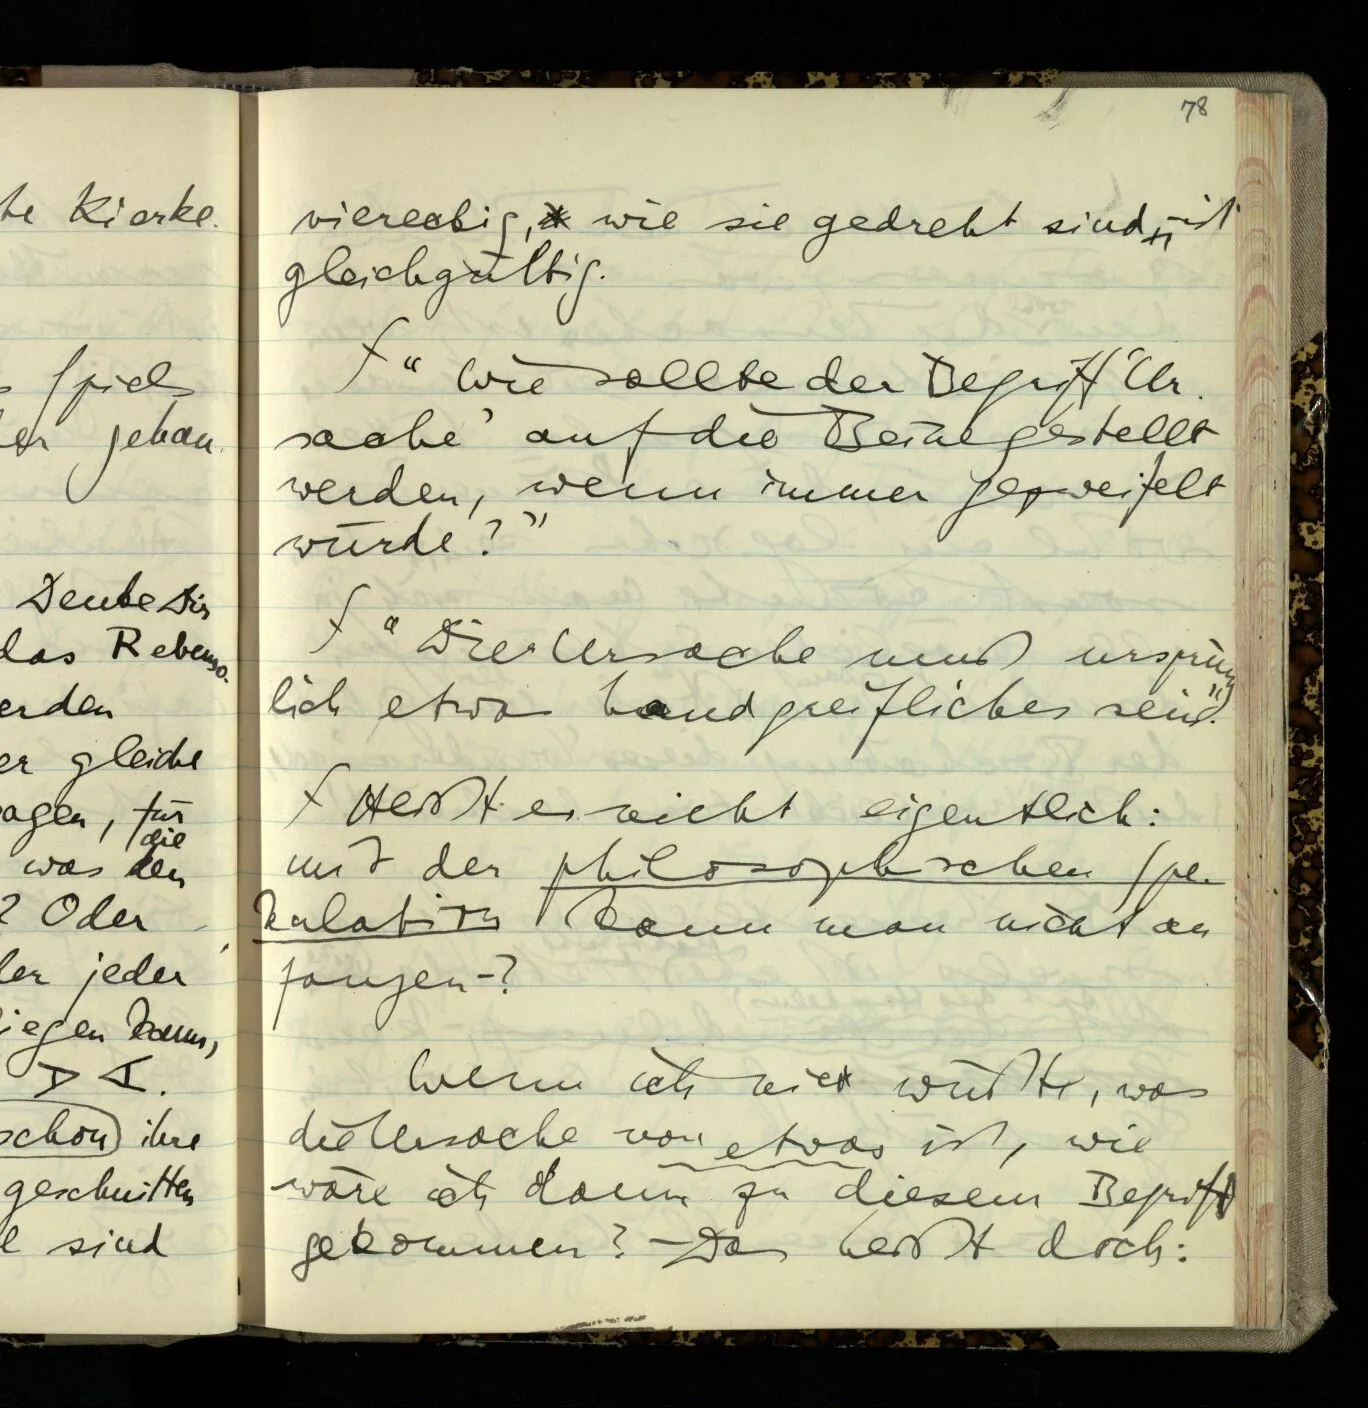 te Kierke.
s Spiels
er jeban
Denke Dir
das Rebenso-
erden
er gleiche
agen, für
die
was den
? Oder
der jeder
iegen kann,
schon ihre
geschnitten
e sind
78
viereckig, wie sie gedreht sind, ist
gleichgültig.
∫ "Wie sollte der Begriff 'Ur-
sache' auf die Beine gestellt
werden, wenn immer gezweifelt
würde?"
∫ "Die Ursache muß ursprüng
lich etwas handgreifliches sein."
∫ Heißt es nicht eigentlich:
mit der philosophischen Spe-
kulation kann man nicht an
fangen–?
Wenn ich nie wüßte, was
die Ursache von etwas ist, wie
wäre ich dann zu diesem Begriff
gekommen? – Das heißt doch: